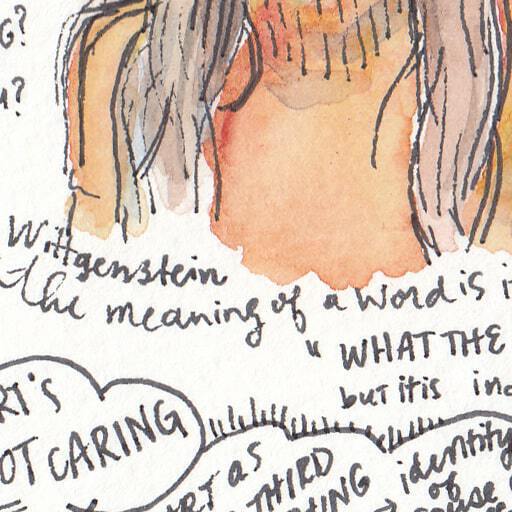 G?
?
Wittgenstein
the meaning of a word is i
"WHAT THE
but it is ind
RT'S
OT CARING
ART as
THIRD
THING
identity
of